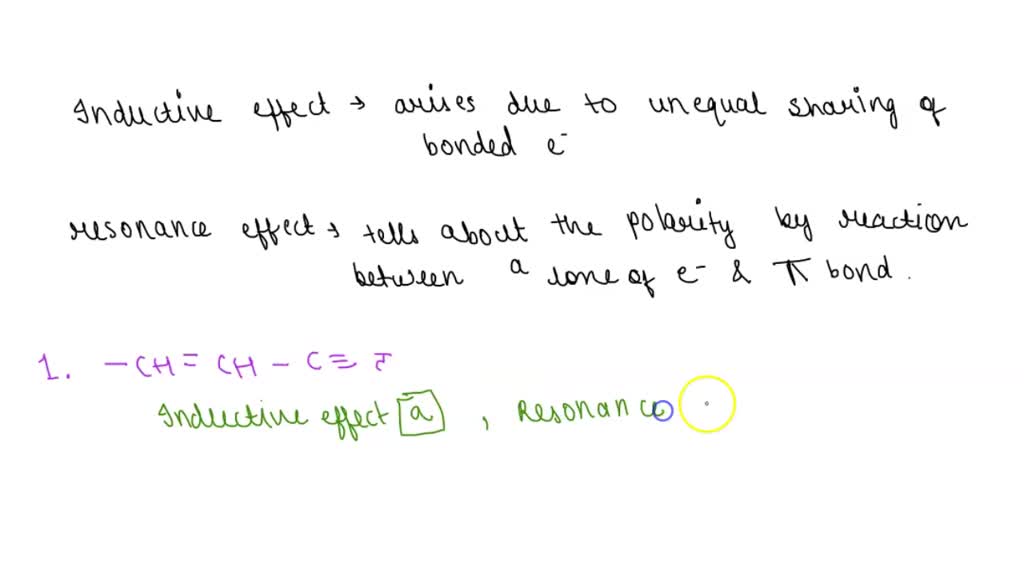 Inductive effect → arises due to unequal sharing of
bonded e⁻
resonance effect → tells about the polarity by reaction
between a lone of e⁻ & π bond.
1. -CH = CH - C ≡
Inductive effect a , Resonance